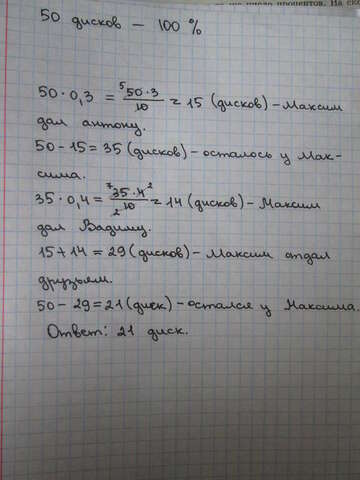 число процентов. На ско
50 дисков — 100 %
50 · 0,3 = ⁵50·3/10 = 15 (дисков) – Максим
дал антону.
50 – 15 = 35 (дисков) – осталось у Мак-
сима.
35 · 0,4 = ⁷35·4²/10₂ = 14 (дисков) – Максим
дал Вадиму.
15 + 14 = 29 (дисков) – Максим отдал
друзьям.
50 – 29 = 21 (диск) – остался у Максима.
Ответ: 21 диск.